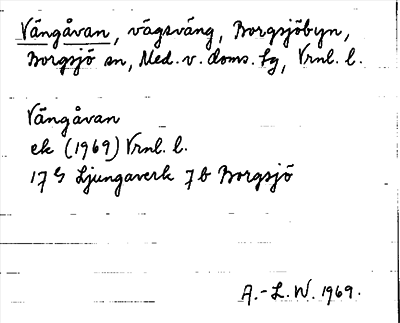 Vängåvan, vägsväng, Borgsjöbyn,
Borgsjö sn, Med. v. doms. tg, Vrnl. l.
Vängåvan
ek (1969) Vrnl. l.
17 G Ljungaverk 7 b Borgsjö
A.-L. W. 1969.